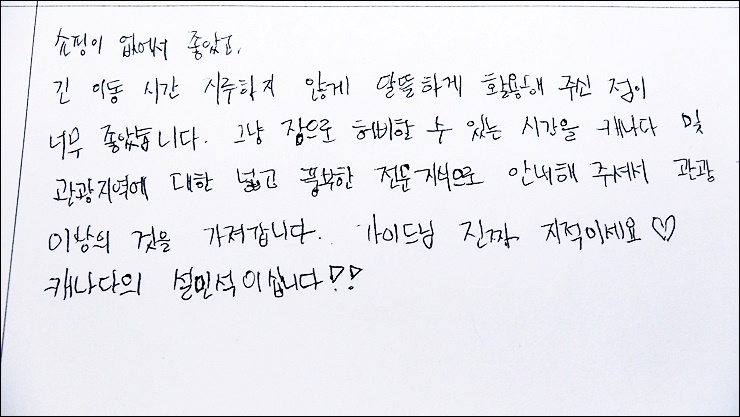 쇼핑이 없어서 좋았고,
긴 이동 시간 지루하지 않게 알뜰하게 활용해 주신 점이
너무 좋았습니다. 그냥 잠으로 허비할 수 있는 시간을 캐나다 및
관광지역에 대한 넓고 풍부한 전문지식으로 안내해 주셔서 관광
이상의 것을 가져갑니다. 가이드님 진짜 지적이세요♡
캐나다의 설민석이십니다!!